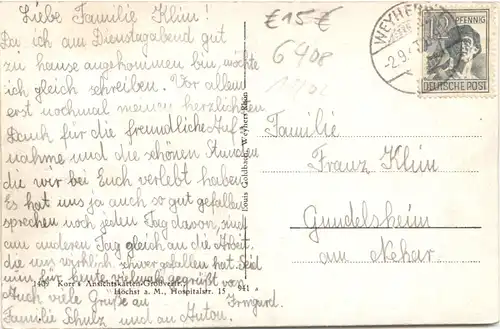 Liebe Familie Klim!
Da ich am Dienstagabend gut
zu hause angekommen bin, möchte
ich gleich schreiben. Vor allem
erst nochmal meinen herzlichsten
Dank für die freundliche Auf-
nahme und die schönen Stunden
die wir bei Euch verlebt haben.
Es hat uns ja auch so gut gefallen
sprechen noch jeden Tag davon, sind
am anderen Tag gleich an die Arbeit.
die uns wirklich schwer gefallen hat. Seid
nun für heute vielmals gegrüßt von
Auch viele Grüße an Irmgard.
Familie Schulz und an Anton.
1409 Korr's Ansichtskarten-Großvertr.,
Höchst a. M., Hospitalstr. 15 941
Louis Goldbach, Weyhers/Rhön
€15€
6408
WEYHERS
-2.9.4
12 PFENNIG
DEUTSCHE POST
Familie
Franz Klim
Gundelsheim
am Nekar